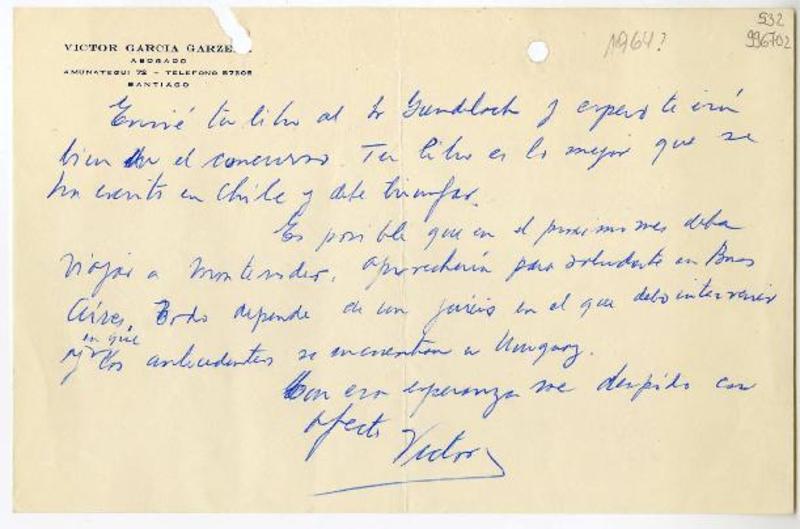 532
996702
1964?
VICTOR GARCIA GARZE
ABOGADO
AMUNATEGUI 72 - TELEFONO 87305
SANTIAGO
Envié tu libro al Sr Gundlach y espero te irá
bien en el concurso. Tu libro es lo mejor que se
ha escrito en Chile y debe triunfar.
Es posible que en el próximo mes deba
viajar a Montevideo, aprovecharía para saludarte en Buenos
Aires. Todo depende de un juicio en el que debo intervenir
y en que los antecedentes se encuentran en Uruguay.
Con esa esperanza me despido con
afecto
Victor